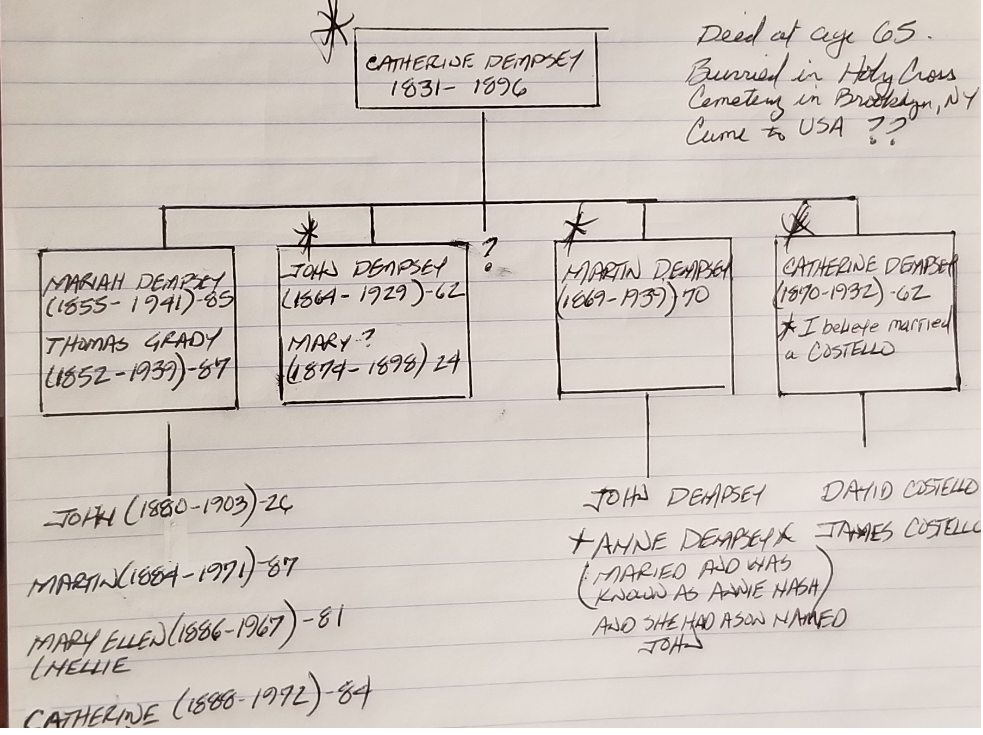 CATHERINE DEMPSEY
1831 - 1896
Deed at age 65.
Burried in Holy Cross
Cemetery in Brooklyn, NY
Came to USA ??
MARIAH DEMPSEY
(1855 - 1941) - 85
THOMAS GRADY
(1852 - 1939) - 87
JOHN DEMPSEY
(1864 - 1929) - 62
MARY ?
(1874 - 1898) 24
?
MARTIN DEMPSEY
(1869 - 1939) 70
CATHERINE DEMPSEY
(1870-1932) - 62
* I believe married
a COSTELLO
JOHN (1880-1903) - 26
MARTIN (1884-1971) - 87
MARY ELLEN (1886-1967) - 81
(NELLIE
CATHERINE (1888-1972) - 84
JOHN DEMPSEY
* ANNE DEMPSEY *
(MARIED AND WAS
KNOWN AS ANNIE NASH)
AND SHE HAD A SON NAMED
JOHN
DAVID COSTELLO
JAMES COSTELLO